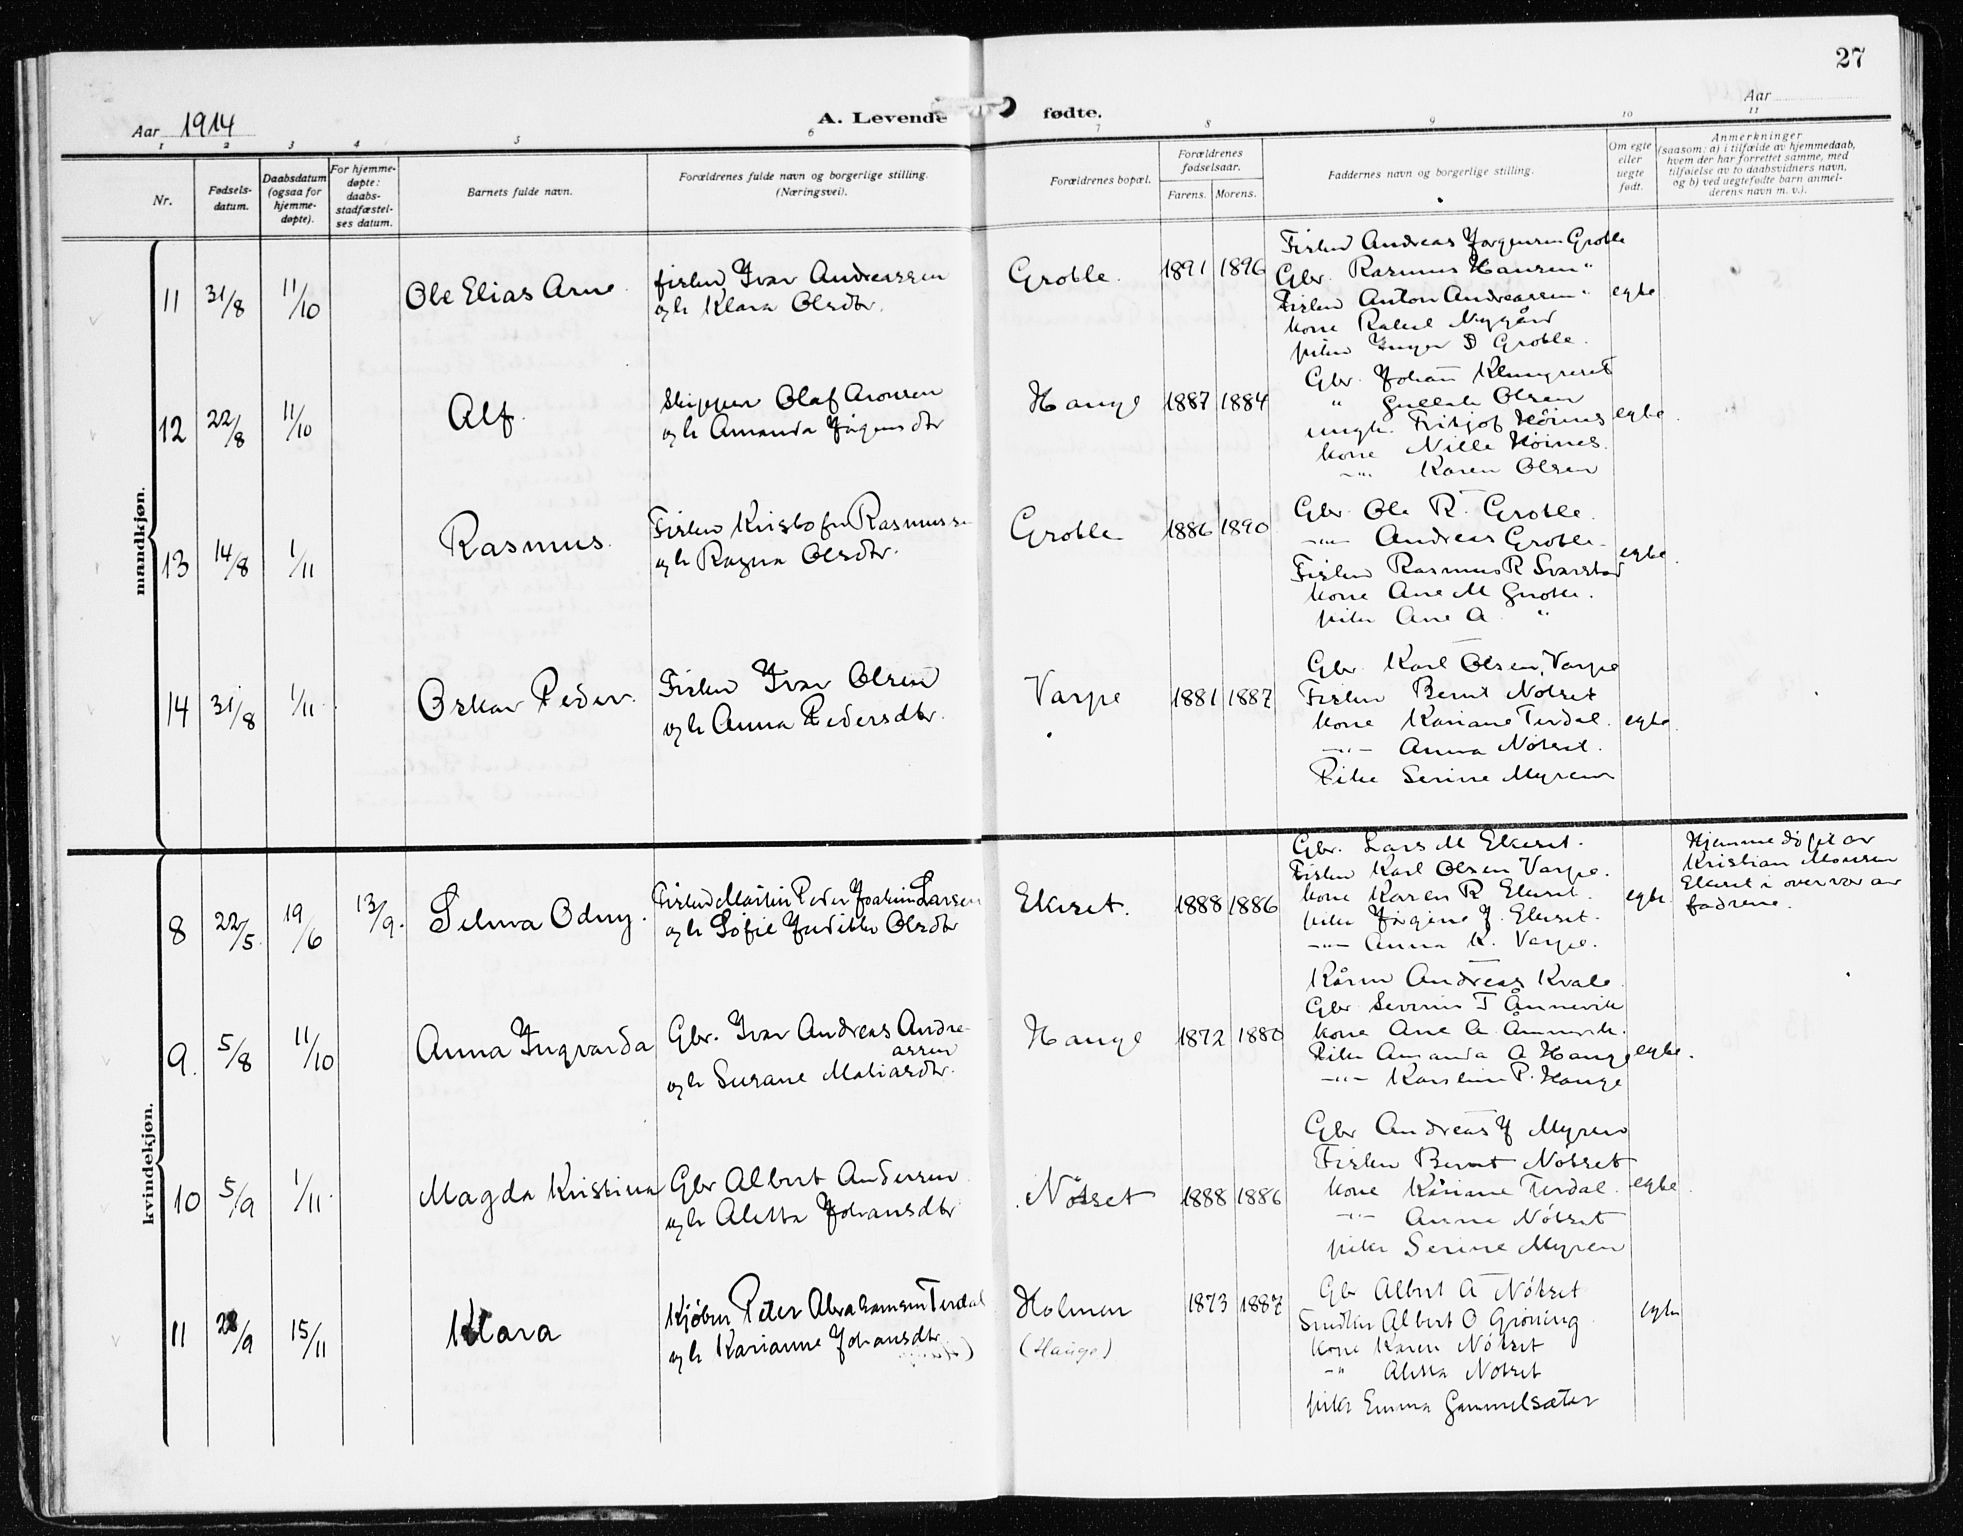 27
Aar 1914
A. Levende fødte.
Aar
1 2 3 4 5 6 7 8 9 10 11
Nr.
Fødsels-
datum.
Daabsdatum
(ogsaa for
hjemme-
døpte).
For hjemme-
døpte:
daabs-
stadfæstel-
ses datum.
Barnets fulde navn.
Forældrenes fulde navn og borgerlige stilling.
(Næringsvei).
Forældrenes bopæl.
Forældrenes
fødselsaar.
Farens. Morens.
Faddernes navn og borgerlige stilling.
Om egte
eller
uegte
født.
Anmerkninger
(saasom: a) i tilfælde av hjemmedaab,
hvem der har forrettet samme, med
tilføielse av to daabsvidners navn,
og b) ved uegtefødte barn anmel-
derens navn m. v.).
mandkjøn.
11 31/8 11/10 Ole Elias Arne
fisker Ivar Andreassen
og h Klara Olsdtr.
Groble. 1891 1896
Fisker Andreas Jørgensen Groble
Gbr. Rasmus Hansen "
Fisker Anton Andreassen "
kone Rakel Nygård
pike Inger D Groble.
egte
12 22/8 11/10 Alf.
Skipper Olaf Aronsen
og h Amanda Jørgensdtr
Hauge 1887 1884
Gbr. Johan Klungreset
" Olsen
ungk. Fritjof Høines
kone Nille Høines.
-"- Karen Olsen
egte.
13 14/8 1/11 Rasmus.
Fisker Kristofer Rasmussen
og h Ragna Olsdtr.
Groble 1886 1890
Gbr. Ole R. Groble.
-"- Andreas Groble
Fisker Rasmus R Svarstad
kone Ane M Groble.
pike Ane A. "
egte.
14 31/8 1/11. Oskar Peder.
Fisker Ivar Olsen
og h Anna Pedersdtr.
Varpe 1881 1887
Gbr. Karl Olsen Varpe
Fisker Bernt Nötset
kone Kariane Terdal.
-"- Anna Nötset.
Pike Serine Myren
egte.
kvindekjøn.
8 22/5. 19/6 13/9. Selma Odny.
Fisker Martin Peder Joakim Larsen
og h Sofie Judikke Olsdtr
Ekeset. 1888 1886
Gbr. Lars M Ekeset.
Fisker Karl Olsen Varpe.
kone Karen R Ekeset.
pike Jørgine J. Ekeset.
-"- Anna K. Varpe.
egte.
Hjemmedöpt av
Kristian Monsen
Ekeset i overvær av
fadrene.
9. 5/8 11/10 Anna Ingvarda
Gbr. Ivar Andreas Andre-
assen
og h Susane Matiasdtr.
Hauge 1872 1880
Kårm Andreas Kvale
Gbr Severin T Ånnevik
kone Ane A Ånnevik.
Pike Amanda A Hauge
-"- Karoline P. Hauge
egte.
10 5/9 1/11. Magda Kristina
Gbr Albert Andersen
og h Aletta Johansdtr
Nötset 1888 1886
Gbr Andreas J Myren
Fisker Bernt Nötset
kone Kariane Terdal.
-"- Anna Nötset
pike Serine Myren
egte.
11 28/9 15/11 Klara
Kjøbm Peter Abrahamsen Terdal
og h Karianne Johansdtr
Holmen
(Hauge)
1873 1887
Gbr Albert A Nötset
Snedker Albert O Gröning
kone Karen Nötset
-" Aletta Nötset
pike Emma Gammelsæter
egte